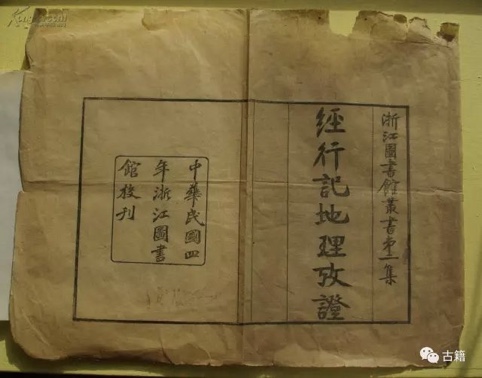 浙江圖書館叢書第二集
經行記地理攷證
中華民國四
年浙江圖書
館挍刊
古籍